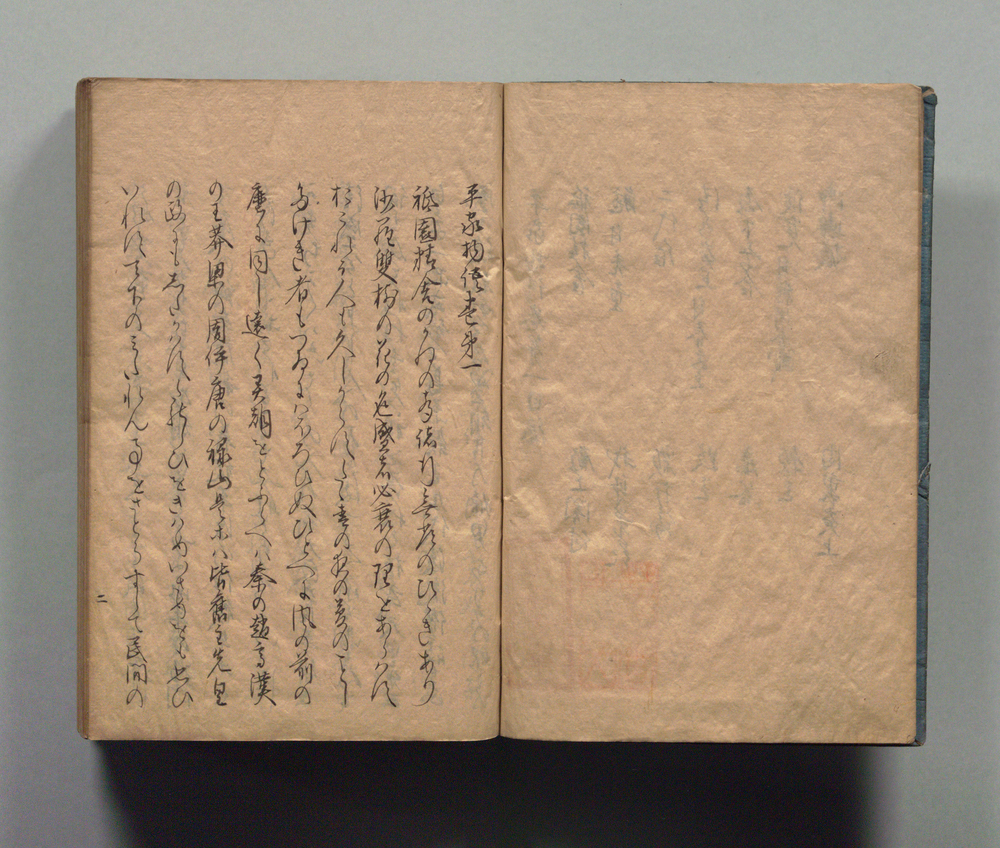 平家物語巻第一
祇園精舎のかねの声諸行無常のひゝきあり
沙羅雙樹の花の色盛者必衰の理をあらはす
おこれる人も久しからすたゝ春の夜の夢のことし
たけき者もつゐにはほろひぬひとへに風の前の
塵に同し遠く異朝をとふらへは秦の趙高漢
の王莽梁の周伊唐の禄山是等は皆旧主先皇
の政にもしたかはすたのしひをきはめいさめをも思ひ
いれす天下のみたれん事をさとらすして民間の
二